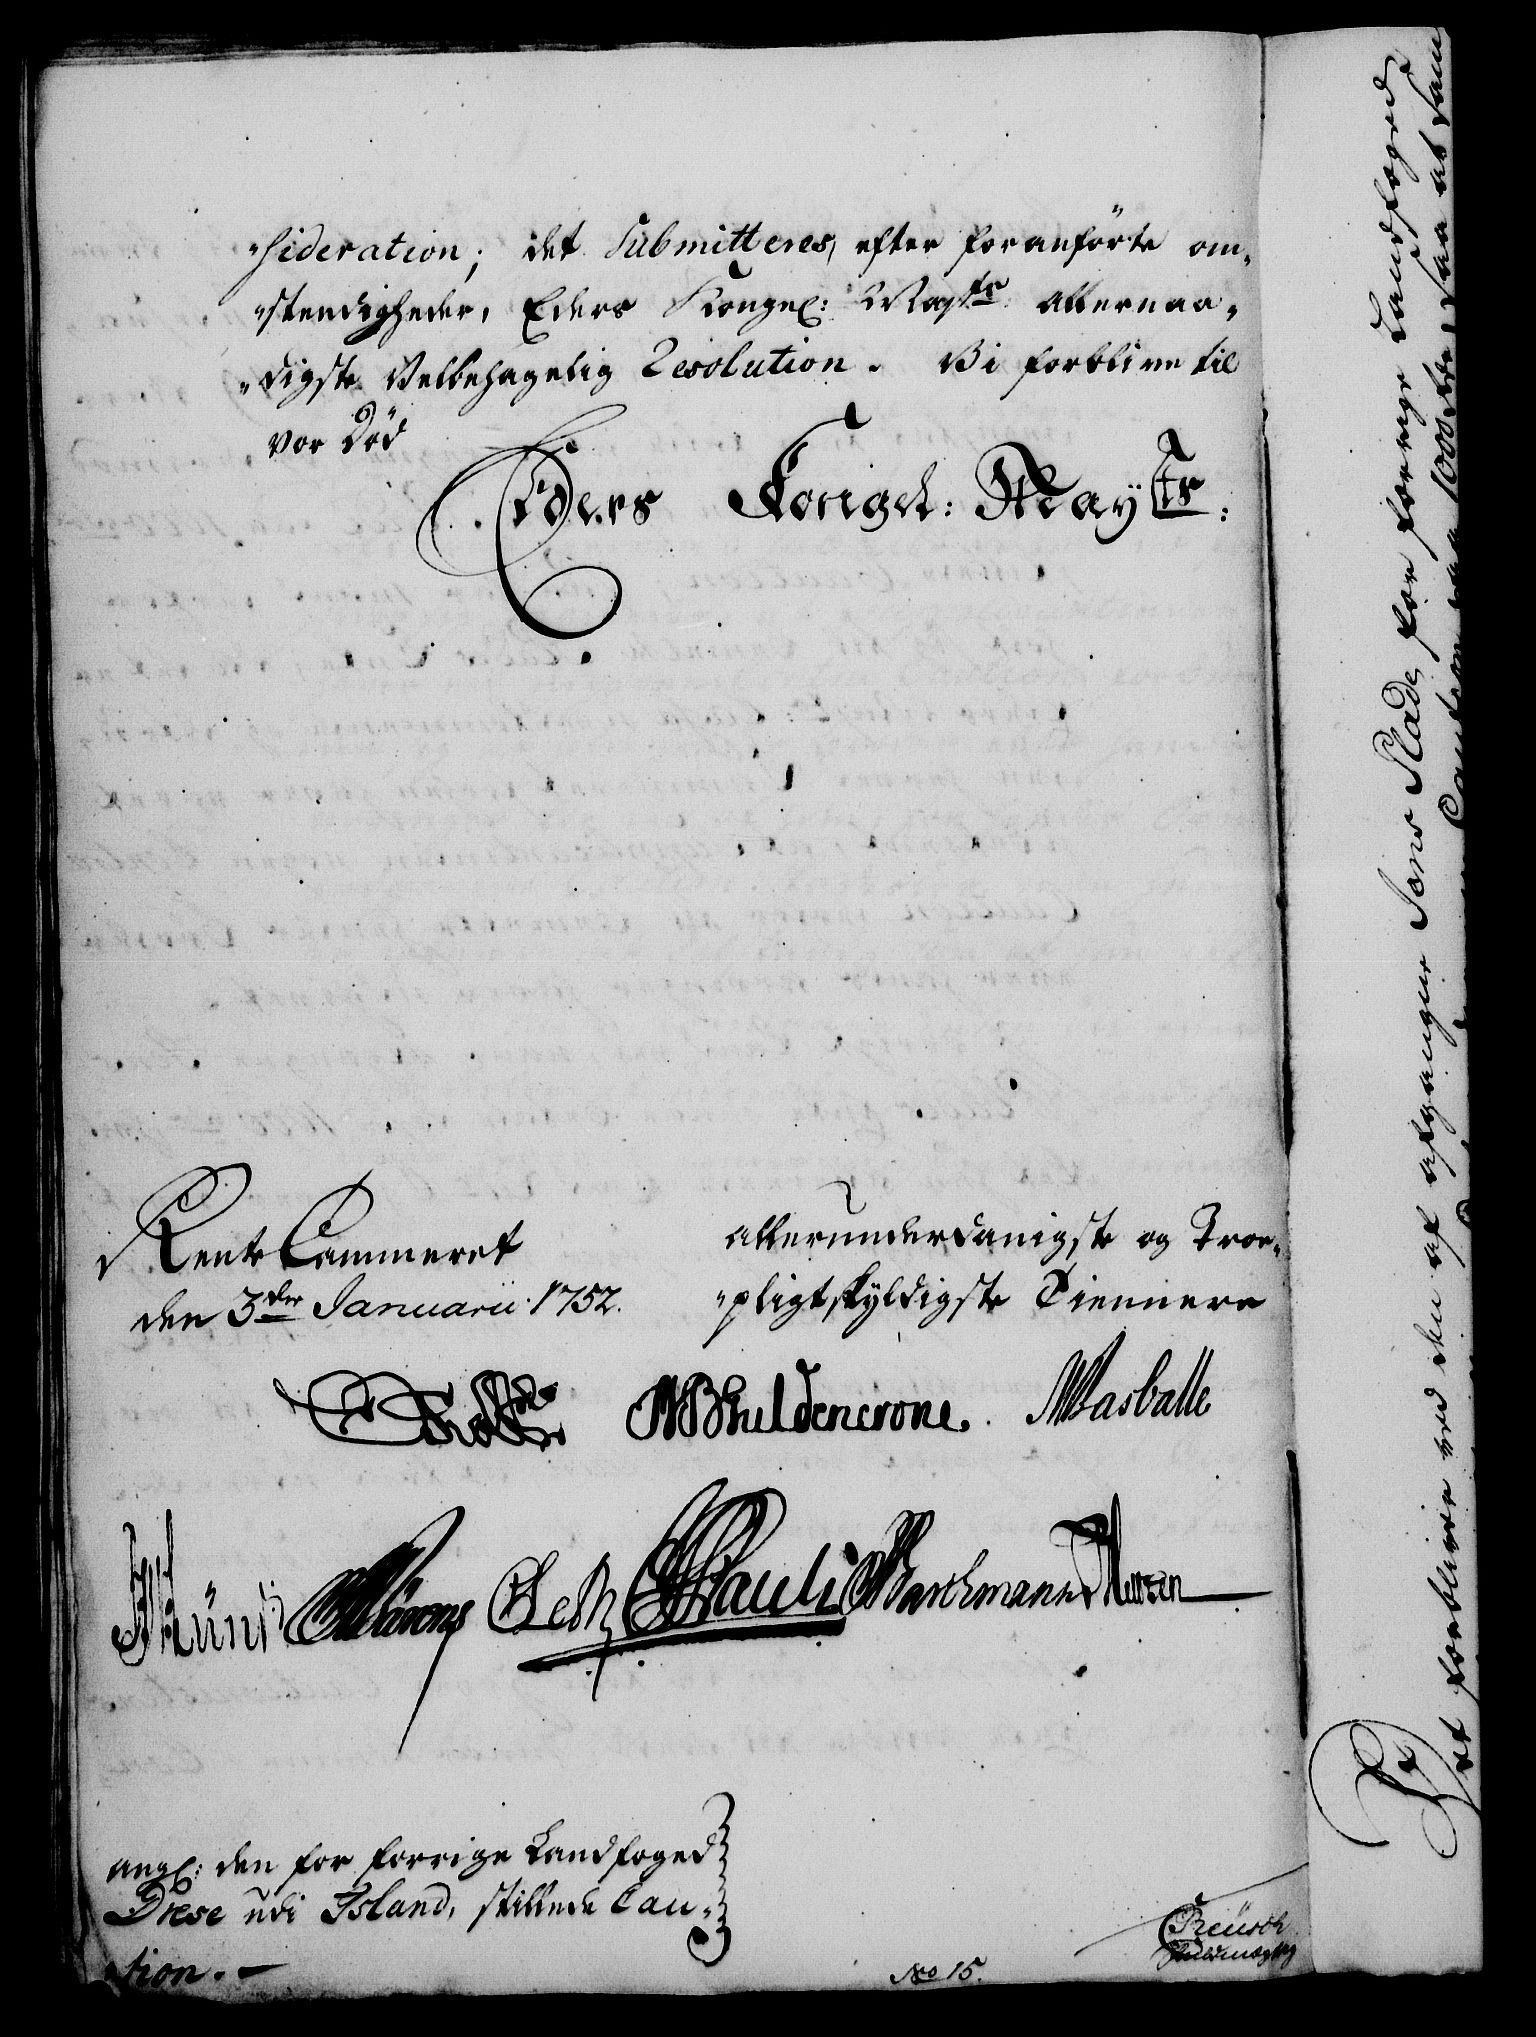 "sideration; det submitteres, efter foranførte om,
"stendigheder, Eders Kongel: Mayts allernaa,
"digste Velbehagelig Resolution. Vi forblive til
vor Död
Eders Kongel: Mayts:
Rente Cammeret
den 3der Januarii 1752.
allerunderdanigste og Troe,
"pligtskyldigste Tiennere
Güldencrone. Masballe
Pauli
angl: den for forrige Landfoged
Drese udi Island, stillede Cau,
tion. -
No 15.
Det forbliver ved den af afgangne Jens Slade, for forrige Landfoged
Caution paa 1000 saa at